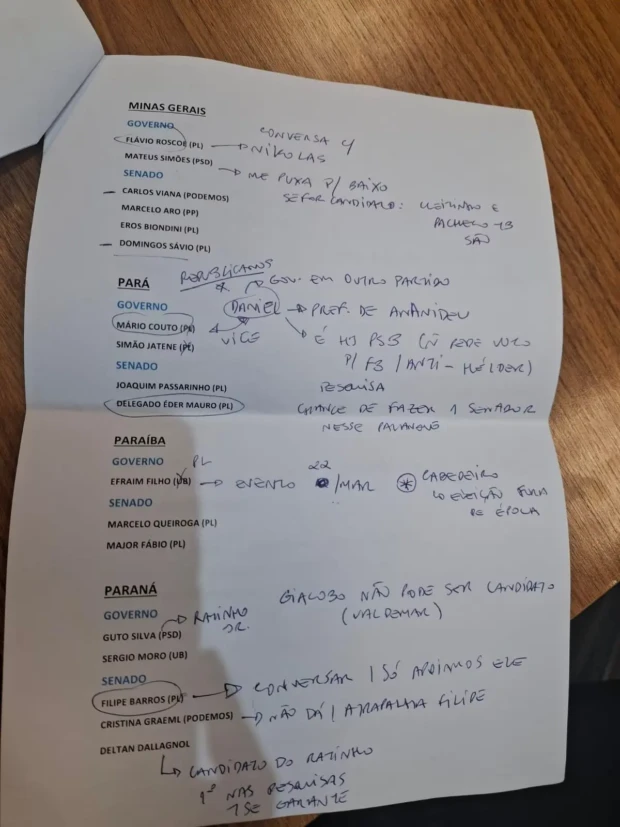 MINAS GERAIS
GOVERNO
CONVERSA C/
FLÁVIO ROSCOE (PL) → NIKOLAS
MATEUS SIMÕES (PSD) → ME PUXA P/ BAIXO
SENADO
SE FOR CANDIDATO: CLEITINHO E
— CARLOS VIANA (PODEMOS)
PACHECO
MARCELO ARO (PP)
SÃO
EROS BIONDINI (PL)
— DOMINGOS SÁVIO (PL)
REPUBLICANOS
PARÁ
GOV. EM OUTRO PARTIDO
GOVERNO
DANIEL → PREF. DE ANANIDEU
MÁRIO COUTO (PL)
VICE
→ É HJ PSB (Ñ PEDE VOTO
SIMÃO JATENE (PL)
P/ FB / ANTI-HÉLDER)
SENADO
JOAQUIM PASSARINHO (PL)
PESQUISA
DELEGADO ÉDER MAURO (PL)
CHANCE DE FAZER 1 SENADOR
NESSE PALANQUE
PARAÍBA
GOVERNO
PL
22
EFRAIM FILHO (UB) → EVENTO /MAR
* CABEDELO
↳ ELEIÇÃO FORA
DE ÉPOCA
SENADO
MARCELO QUEIROGA (PL)
MAJOR FÁBIO (PL)
PARANÁ
GIACOBO NÃO PODE SER CANDIDATO
(VALDEMAR)
GOVERNO
→ RATINHO
JR.
GUTO SILVA (PSD)
SERGIO MORO (UB)
SENADO
FILIPE BARROS (PL) → CONVERSAR / SÓ APOIAMOS ELE
CRISTINA GRAEML (PODEMOS) → NÃO DÁ / ATRAPALHA FILIPE
DELTAN DALLAGNOL
↳ CANDIDATO DO RATINHO
1º NAS PESQUISAS
SE GARANTE